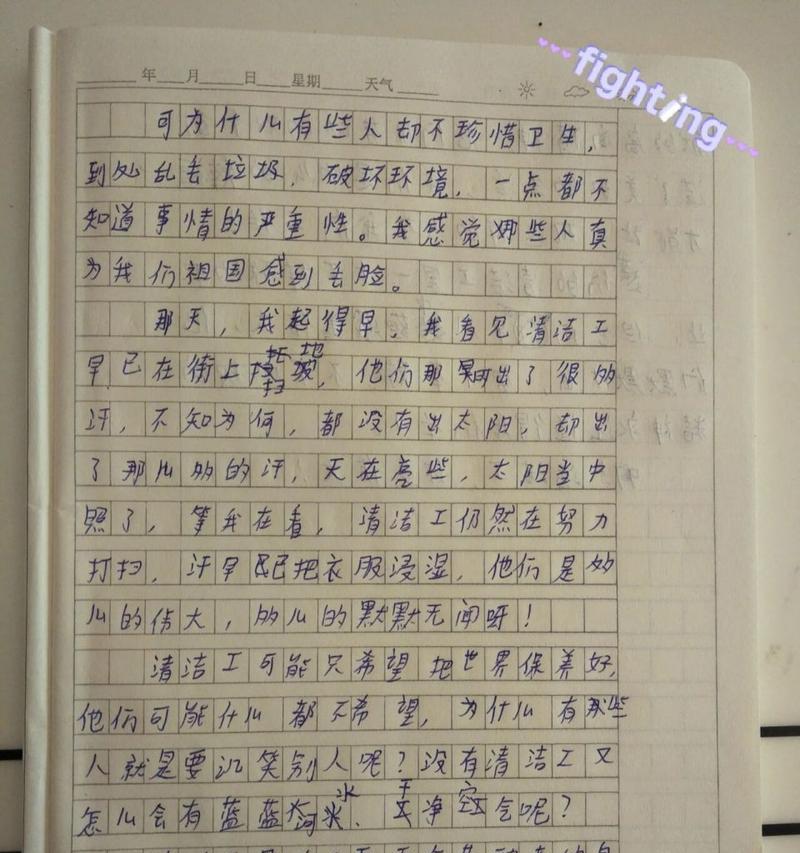 ____年____月____日____星期____天气____
fighting
可为什么有些人却不珍惜卫生，
到处乱丢垃圾，破坏环境，一点都不
知道事情的严重性。我感觉哪些人真
为我们祖国感到丢脸。
那天，我起得早，我看见清洁工
早已在街上扫地，他们那时出了很多
汗，不知为何，都没有出太阳，却出
了那么多的汗，天在亮些，太阳当中
照了，等我在看，清洁工仍然在努力
打扫，汗早已把衣服浸湿，他们是多
么的伟大，多么的默默无闻呀！
清洁工可能只希望把世界保养好，
他们可能什么都不希望，为什么有那些
人就是要讥笑别人呢？没有清洁工又
怎么会有蓝蓝河水、干净空气呢？